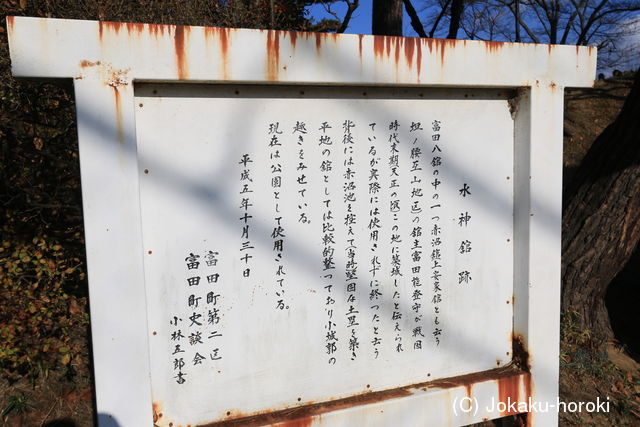 水神舘跡
富田八舘の中の一つ赤沼舘上妾家舘とも云う
（腰巠山地区）の舘主富田能登守が戦国
時代末期天正の頃この地に築城したと伝えられ
ているが実際には使用されずに終ったと云う
背後には赤沼池を控えて当時堅固な土塁を築き
平地の舘としては比較的整っており小城郭の
趣きをみせている。
現在は公園として使用されている。
平成五年十月三十日
富田町第二区
富田町史談会
小林五郎書
(C) Jokaku-horoki